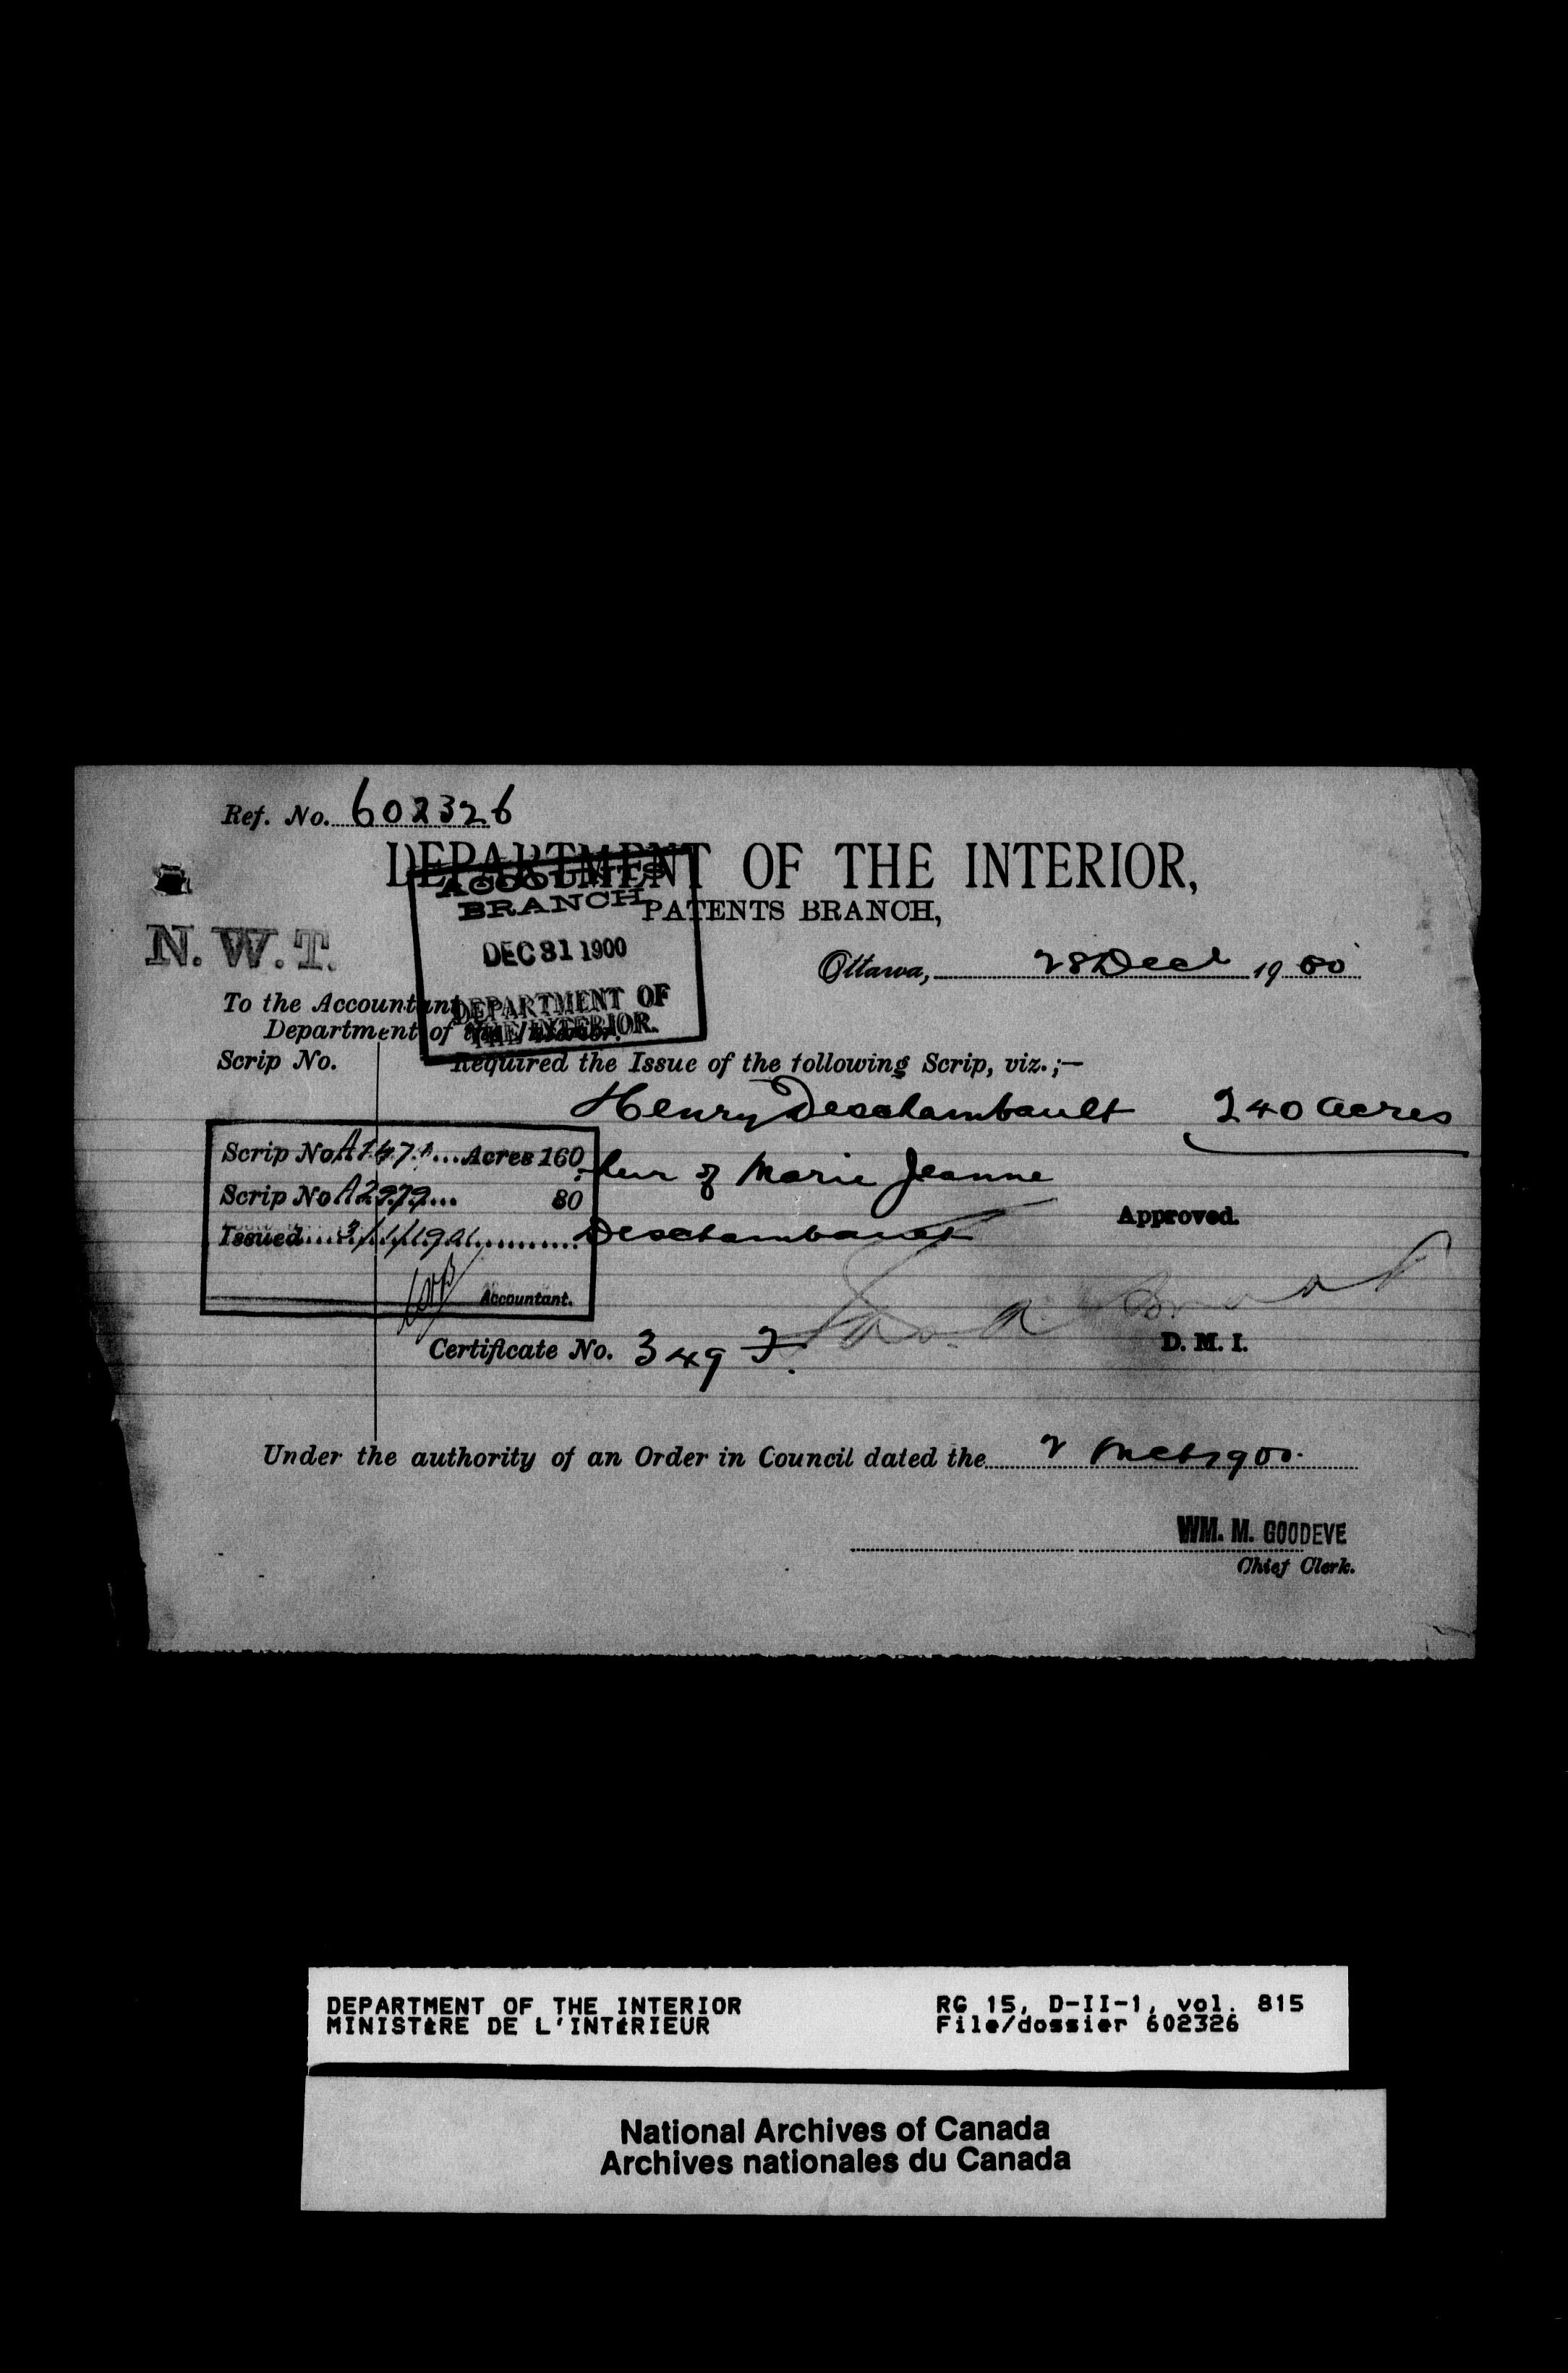 Ref. No. 602326
DEPARTMENT OF THE INTERIOR,
PATENTS BRANCH,
ACCOUNTS
BRANCH
DEC 31 1900
DEPARTMENT OF
THE INTERIOR.
N. W. T.
Ottawa, 28 Decr 1900
To the Accountant
Department of the Interior.
Scrip No. Required the Issue of the following Scrip, viz.;—
Henry Deschambault 240 acres
heir of Marie Jeanne
Deschambault
Scrip No. Acres 160
Scrip No A2979 80
Issued 3/1/1901
Accountant.
Approved.
D. M. I.
Certificate No. 349 F.
Under the authority of an Order in Council dated the 2 Mch 1900.
WM. M. GOODEVE
Chief Clerk.
DEPARTMENT OF THE INTERIOR
MINISTÈRE DE L'INTÉRIEUR
RG 15, D-II-1, vol. 815
File/dossier 602326
National Archives of Canada
Archives nationales du Canada